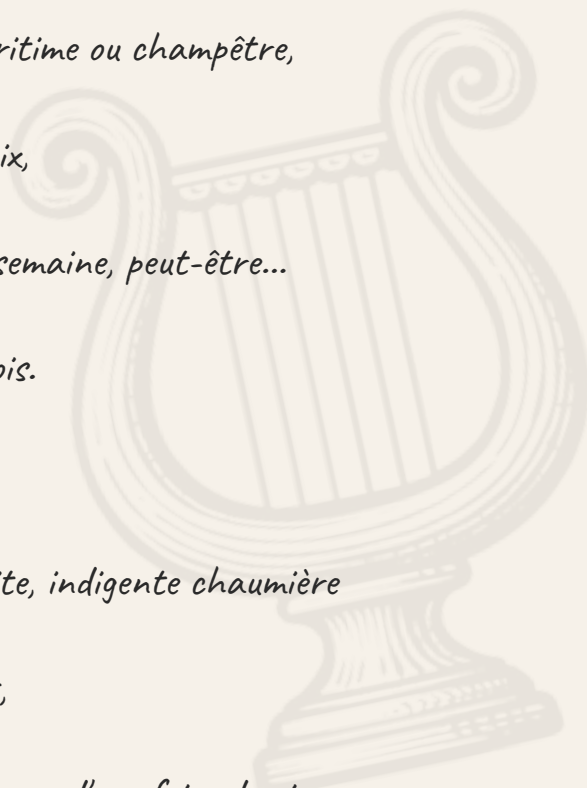 ritime ou champêtre,
ix,
semaine, peut-être...
ois.
te, indigente chaumière